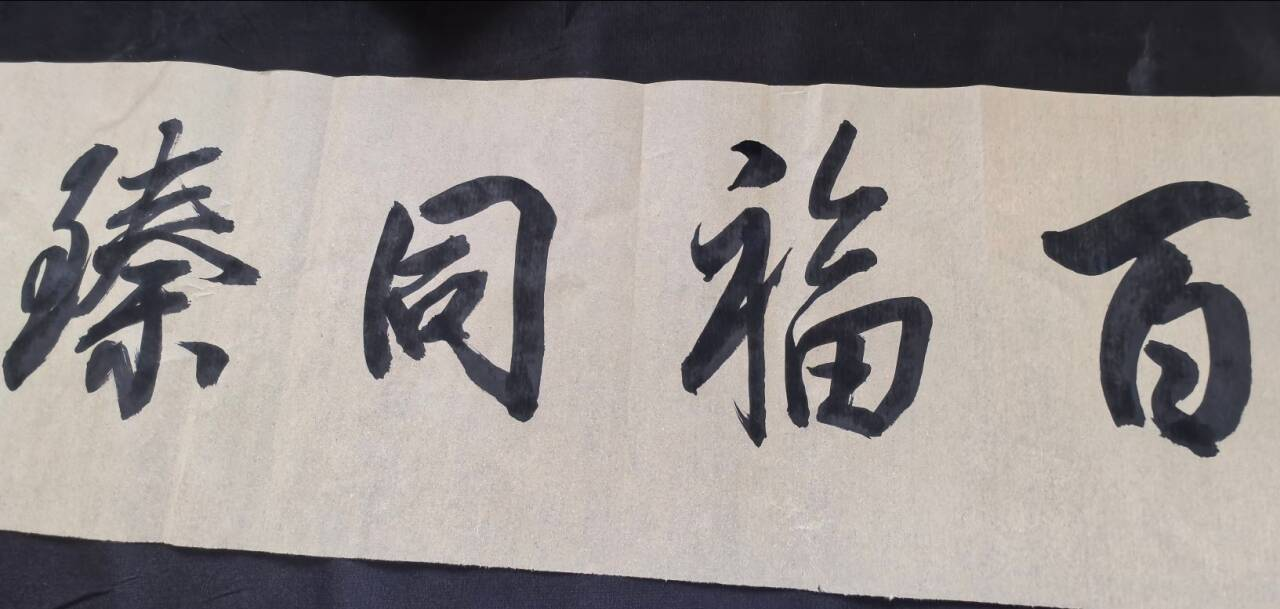 百福同臻